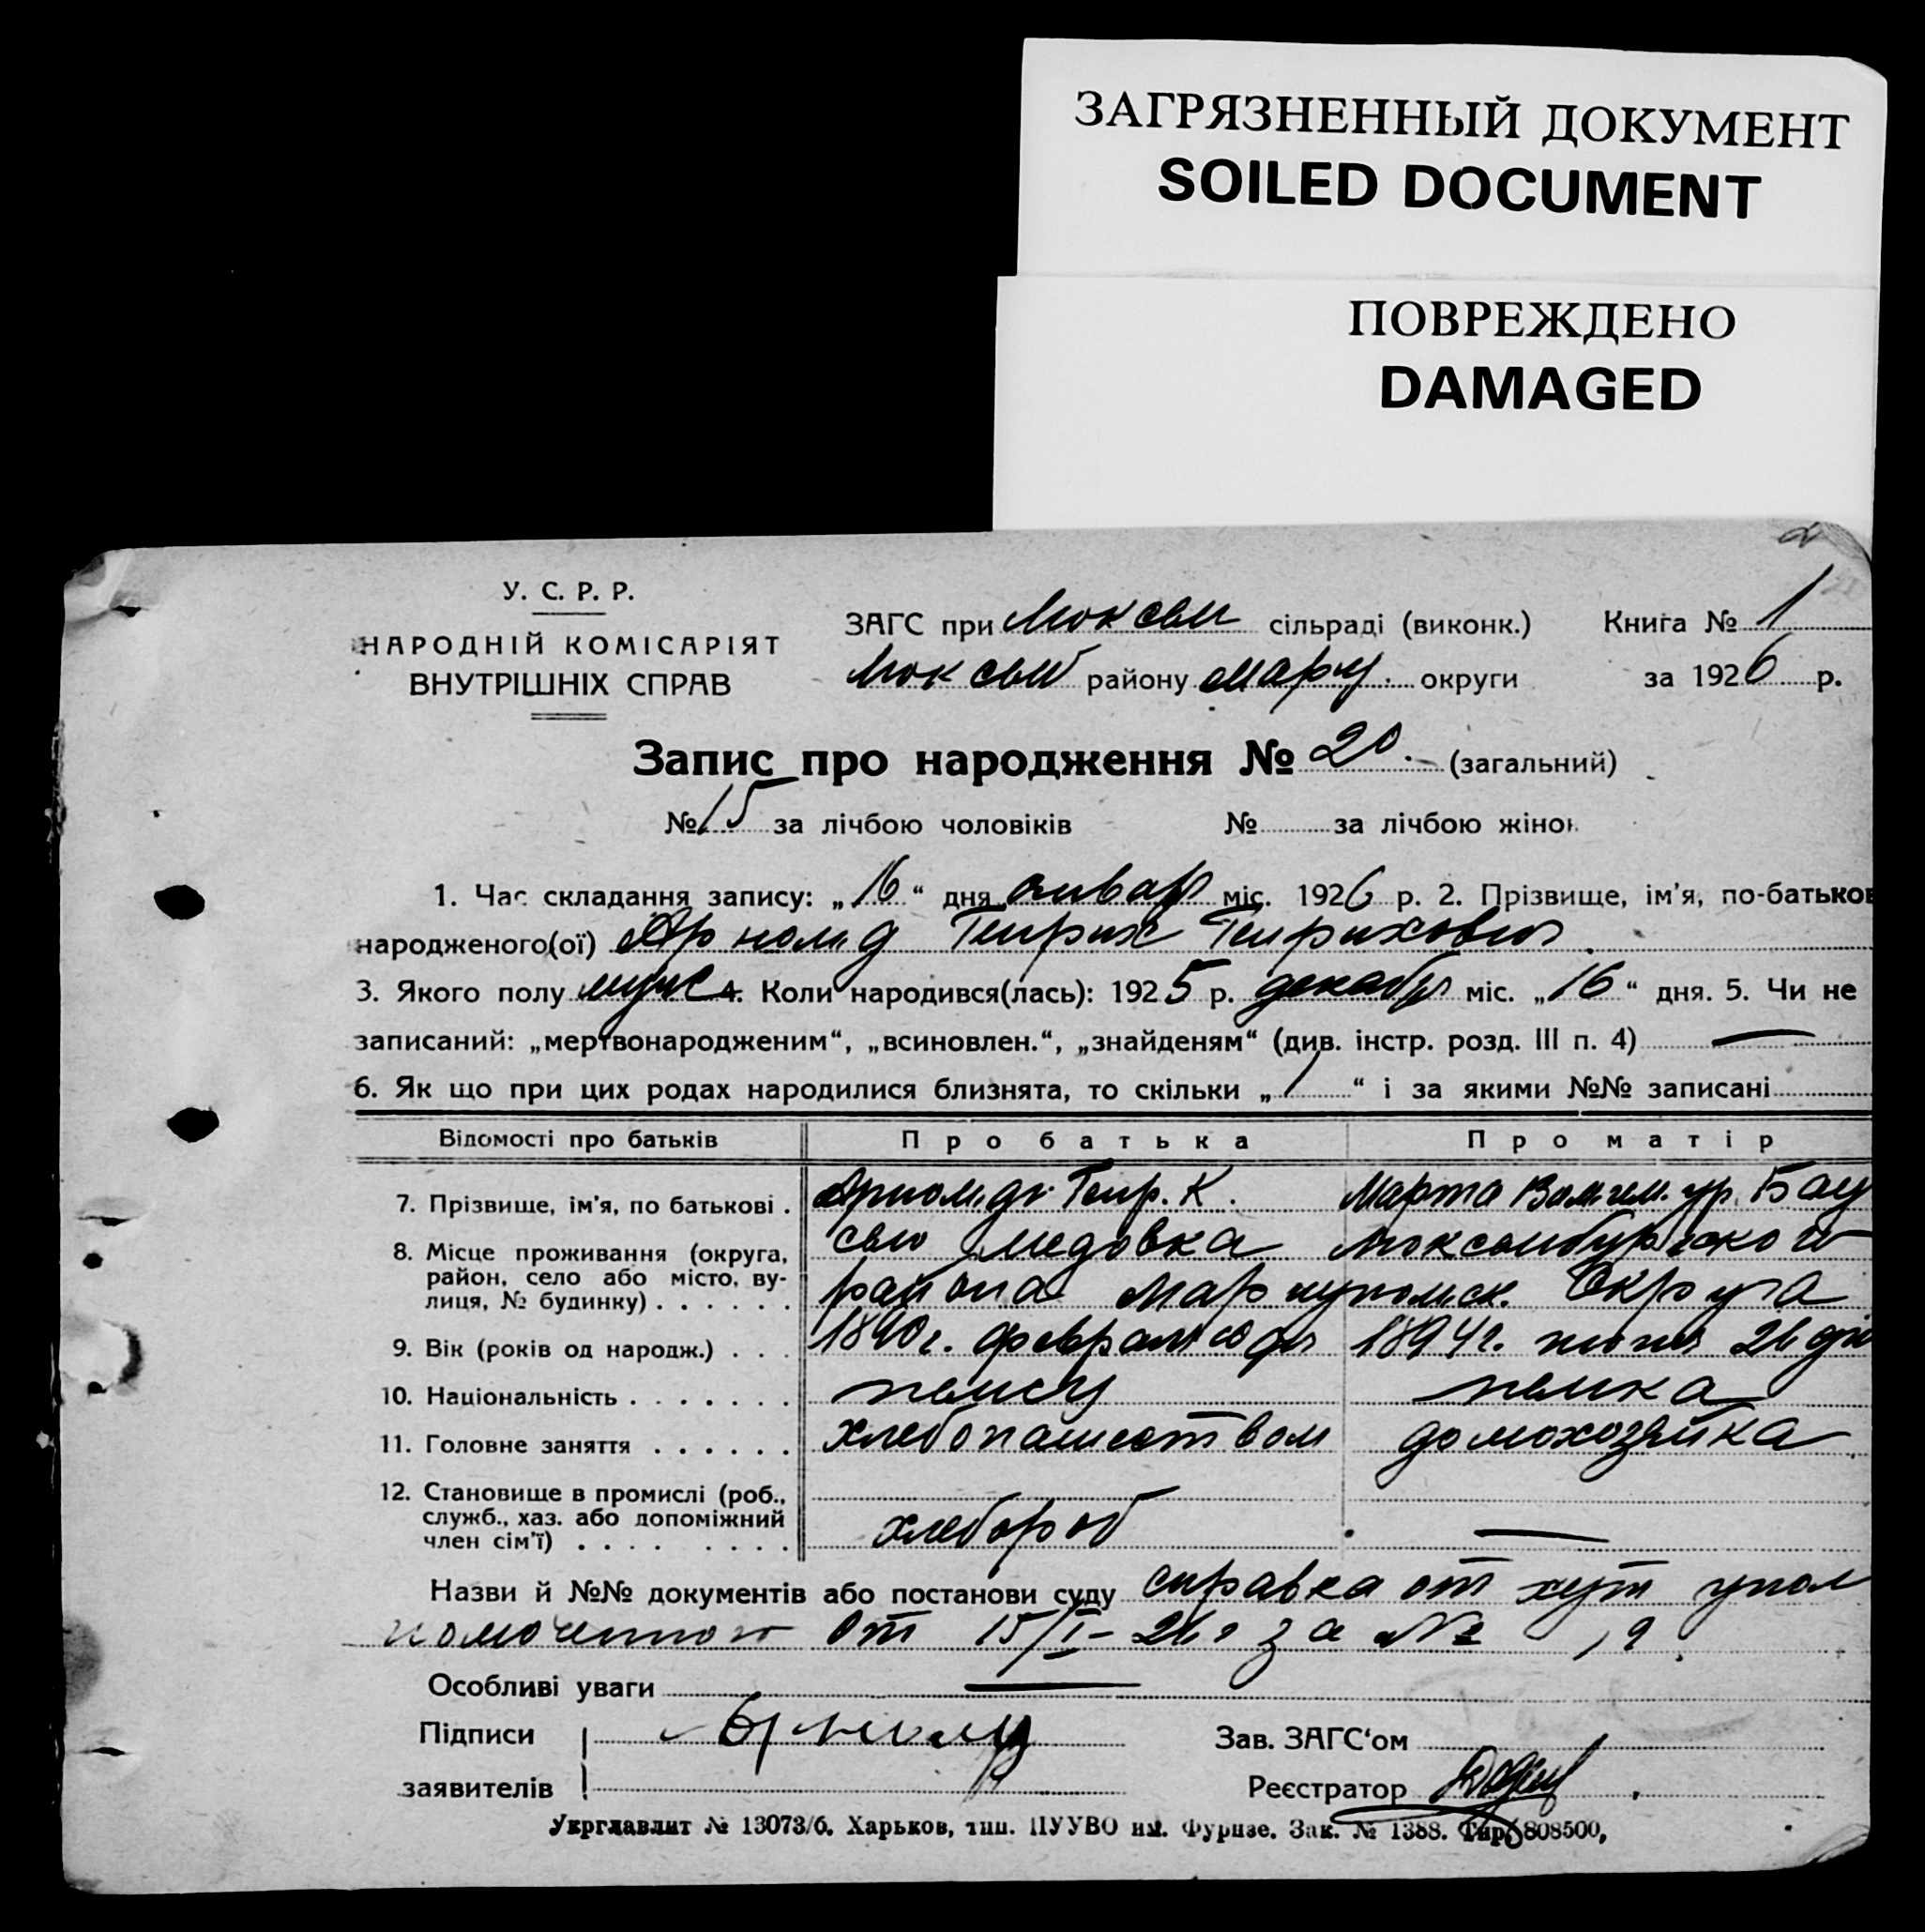 ЗАГРЯЗНЕННЫЙ ДОКУМЕНТ
SOILED DOCUMENT
ПОВРЕЖДЕНО
DAMAGED
2
У. С. Р. Р.
НАРОДНІЙ КОМІСАРІЯТ
ВНУТРІШНІХ СПРАВ
ЗАГС при Люксем сільраді (виконк.) Книга № 1
Люксем району Мариу. округи за 1926 р.
Запис про народження № 20. (загальний)
№ 15 за лічбою чоловіків № за лічбою жінок
1. Час складання запису: „16“ дня январ міс. 1926 р. 2. Прізвище, ім'я, по-батьков
народженого(ої) Арнольд Генрих Генрихович
3. Якого полу муж 4. Коли народився(лась): 1925 р. декабр міс. „16“ дня. 5. Чи не
записаний: „мертвонародженим“, „всиновлен.“, „знайденям“ (див. інстр. розд. III п. 4) —
6. Як що при цих родах народилися близнята, то скільки „1“ і за якими №№ записані
Відомості про батьків Про батька Про матір
7. Прізвище, ім'я, по батькові . Арнольд Генр. К. Марта Вильгел. ур. Бау
8. Місце проживання (округа, район, село або місто, вулиця, № будинку) . . . . . . Люксембургского
района Мариупольск. Округа
9. Вік (років од народж.) . . . 1890г. февраля 1894г. июня 26 дня
10. Національність . . . . . . . немец немка
11. Головне заняття . . . . . . хлебопашеством домохозяйка
12. Становище в промислі (роб., служб., хаз. або допоміжний член сім'ї) . . . . . . . . . хлебороб —
Назви й №№ документів або постанови суду справка от хут упол
номоченного от 15/I-26г за № 19
Особливі уваги —
Підписи Арнольд Зав. ЗАГС'ом
заявителів Реєстратор
Укрглавлит № 13073/б. Харьков, тип. ПУУВО им. Фрунзе. Зак. № 1388. Тир. 808500,